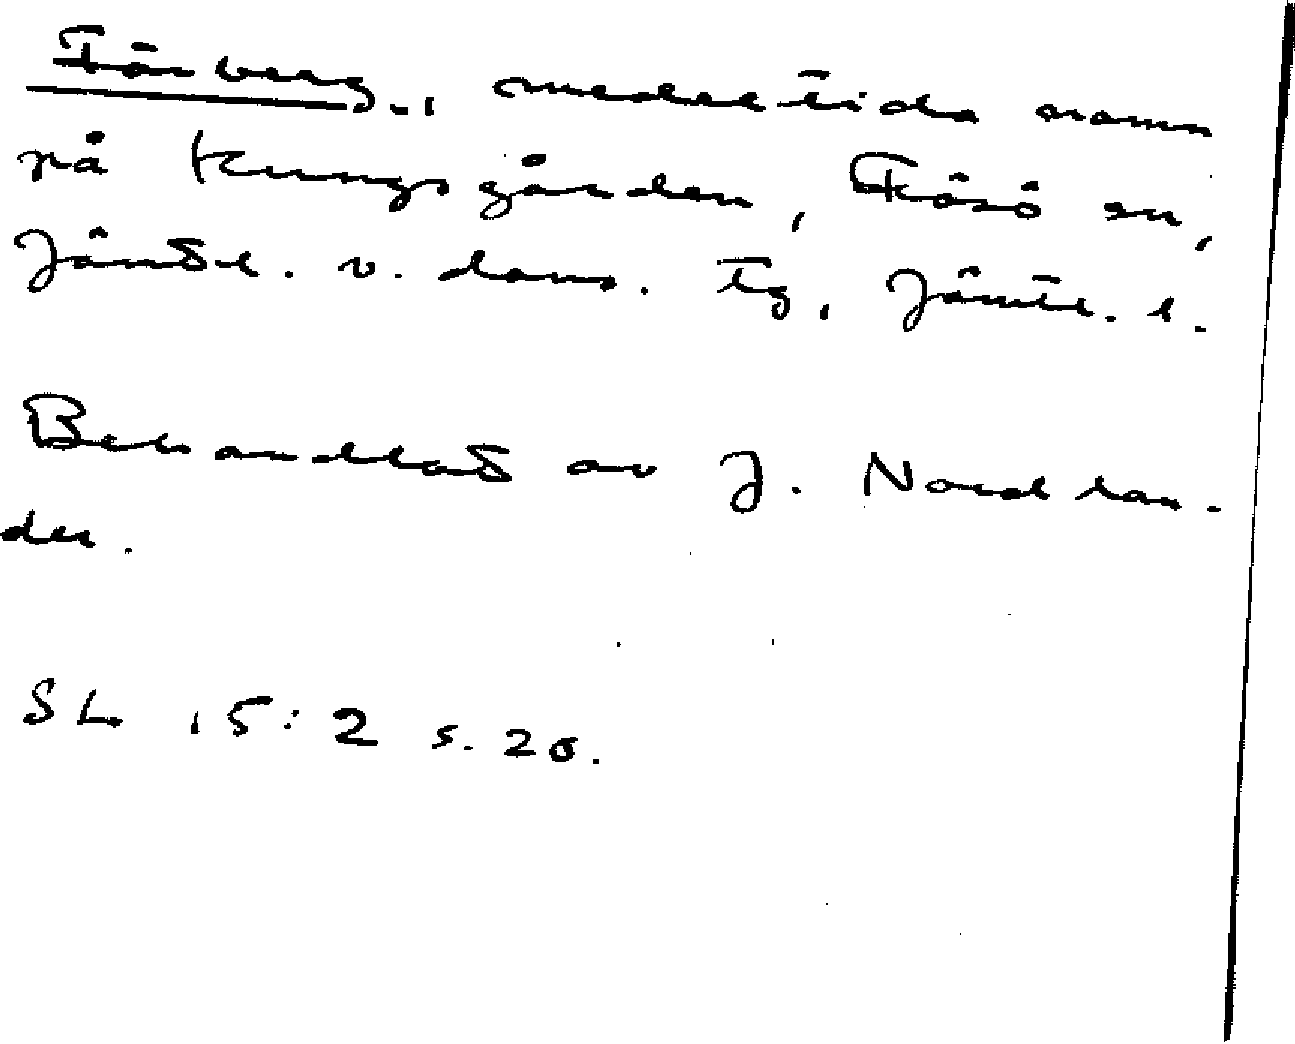 Färberg., medeltida namn
på Kungsgården, Frösö sn,
Jämtl. v. doms. tg, Jämtl. l.
Behandlat av J. Nordlan-
der.
SL 15:2 s. 20.